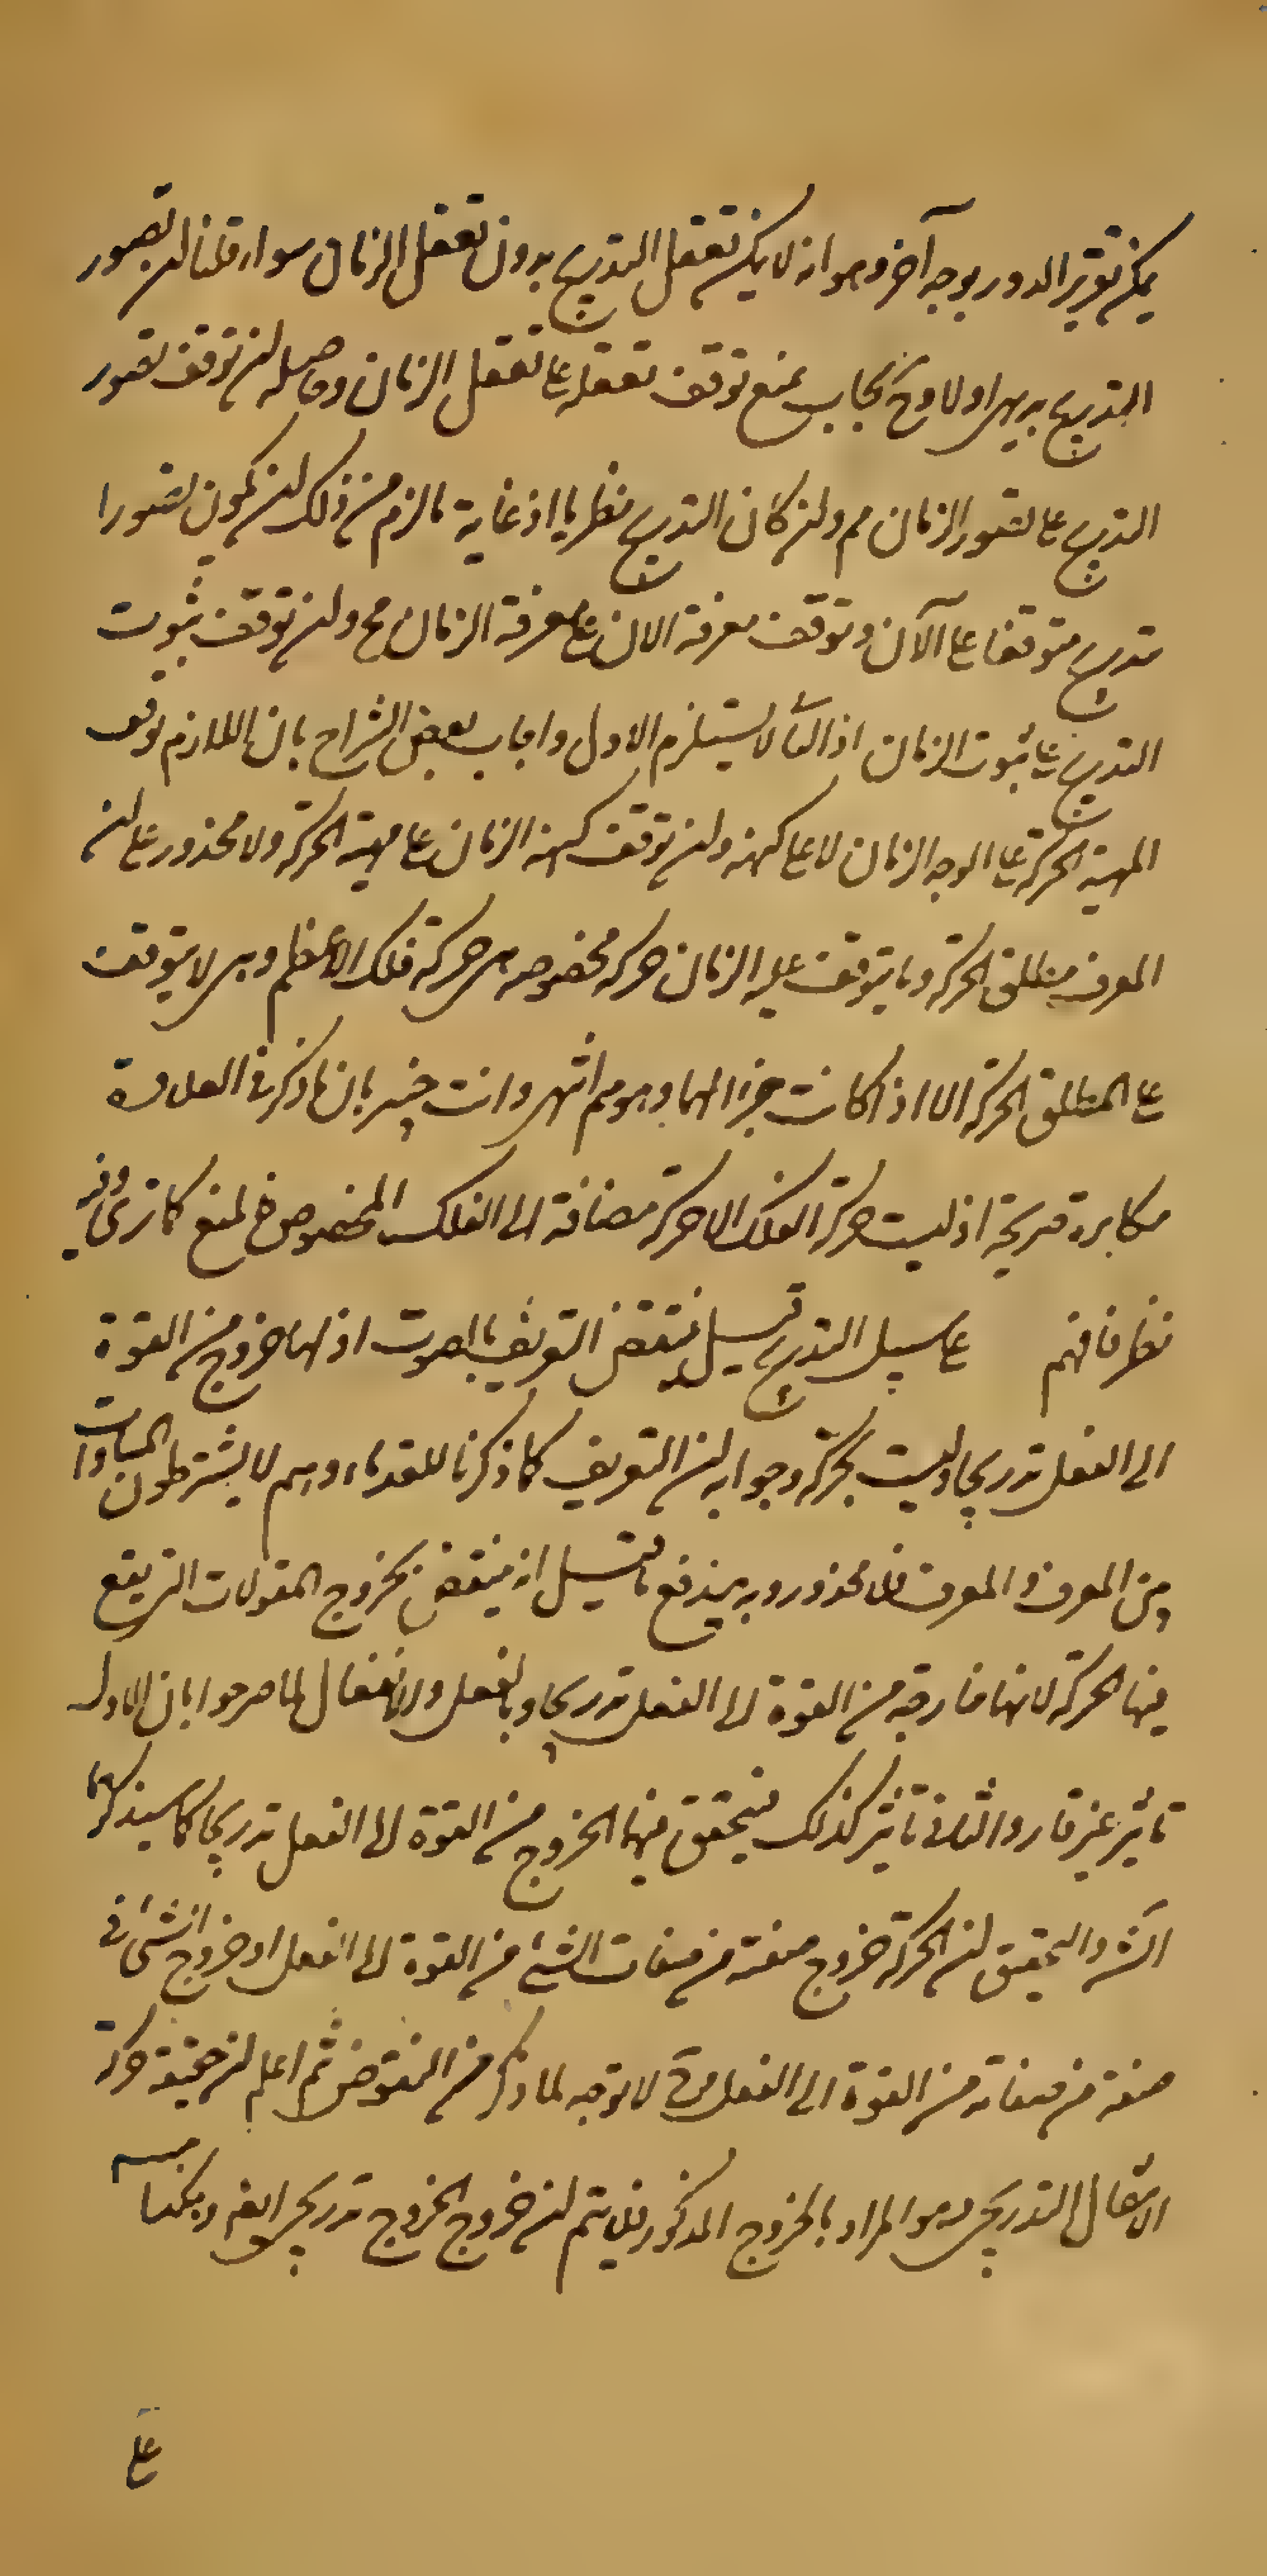 يمكن تقرير الدور بوجه آخر وهو انه لا يمكن تعقل التدريج بدون تعقل الزمان سواء قلنا ان تصور
التدريج بديهى او لا وح يجاب بمنع توقف تعقله على تعقل الزمان وحاصله ان توقف تصور
التدريج على تصور الزمان مم وان كان التدريج نظريا اذ غاية ما لزم من ذلك ان يكون تصور ا
متدريج متوقفا على الآن وتوقف معرفة الان على معرفة الزمان مح وان توقف ثبوت
التدريج على ثبوت الزمان اذ الثانى لا يستلزم الاول واجاب بعض الشراح بان اللازم توقف
المهية الحركة على الوجه الزمان لا على كنهه وان توقف كنهه الزمان على مهية الحركة ولا محذور على ان
المعرف مطلق الحركة وما يتوقف عليه الزمان حركه مخصوصه هى حركة فلك الاعظم وهى لا يتوقف
على المطلق الحركة الا اذا كانت جزء المها وهو مم انتهى وانت خبير بان ما ذكر فى العلاوة
مكابرة صريحة اذ ليست حركة الفلك الا حركة مضافة الى الفلك المخصوص فالمنع كما ترى وفيه
نظر فافهم على سبيل التدريج قيل ينتقض التعريف بالصوت اذ لها خروج من القوة
الى الفعل تدريجا وليست بحركة وجوابه ان التعريف كما ذكرنا للقدماء وهم لا يشترطون المساوات
بين المعرف والمعرف فلا محذور وبه يندفع ما قيل انه ينتقض بخروج المقولات التى يقع
فيها الحركة لانها خارجه من القوة الى الفعل تدريجا وبالفعل والانفعال لما صرحوا بان الاول
تأثير غير قار والثانى تأثر كذلك فيتحقق فيها الخروج من القوة الى الفعل تدريجا كما سيذكرهما
الش والتحقيق ان الحركة خروج صفة من صفات الشئ من القوة الى الفعل او خروج الشئ فى
صفة من صفاته من القوة الى الفعل وح لا توجه لما ذكر من النقوض ثم اعلم ان حقيقة حركة
الانتقال التدريجى وهو المراد بالخروج المذكور فلا يتم ان خروج الخروج تدريجى ايضا وهكذا
على